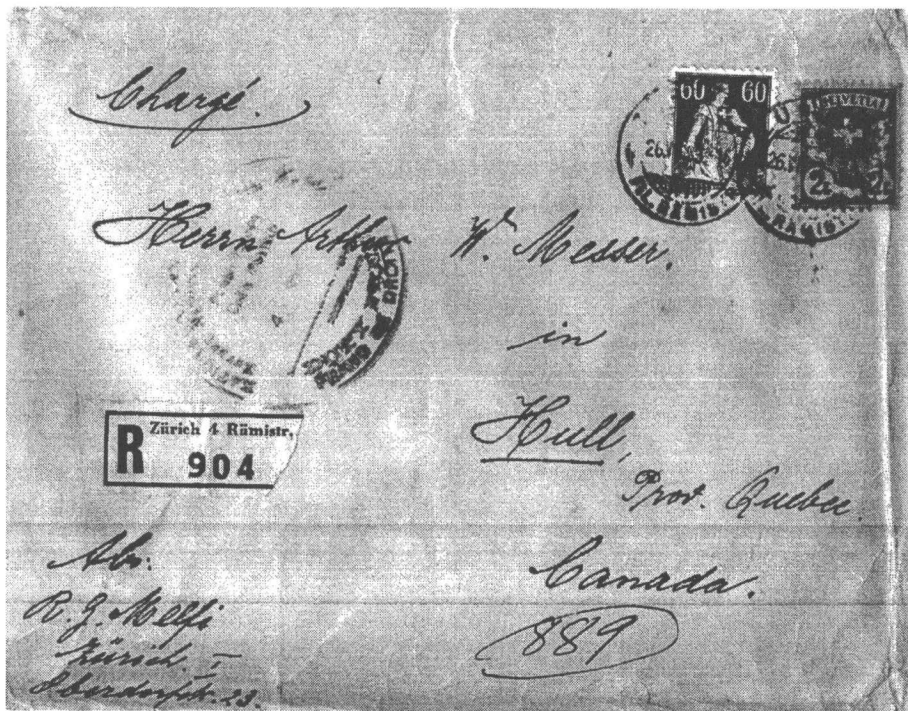 Chargé.
60 60
HELVETIA
2 2
26. 26.
Herrn Arthur W. Messer.
in
Hull,
Prov. Quebec.
Canada.
889
R Zürich 4 Rämistr.
904
Abs:
R. G. Melfi
Zürich. I
Oberdorfstr. 23.